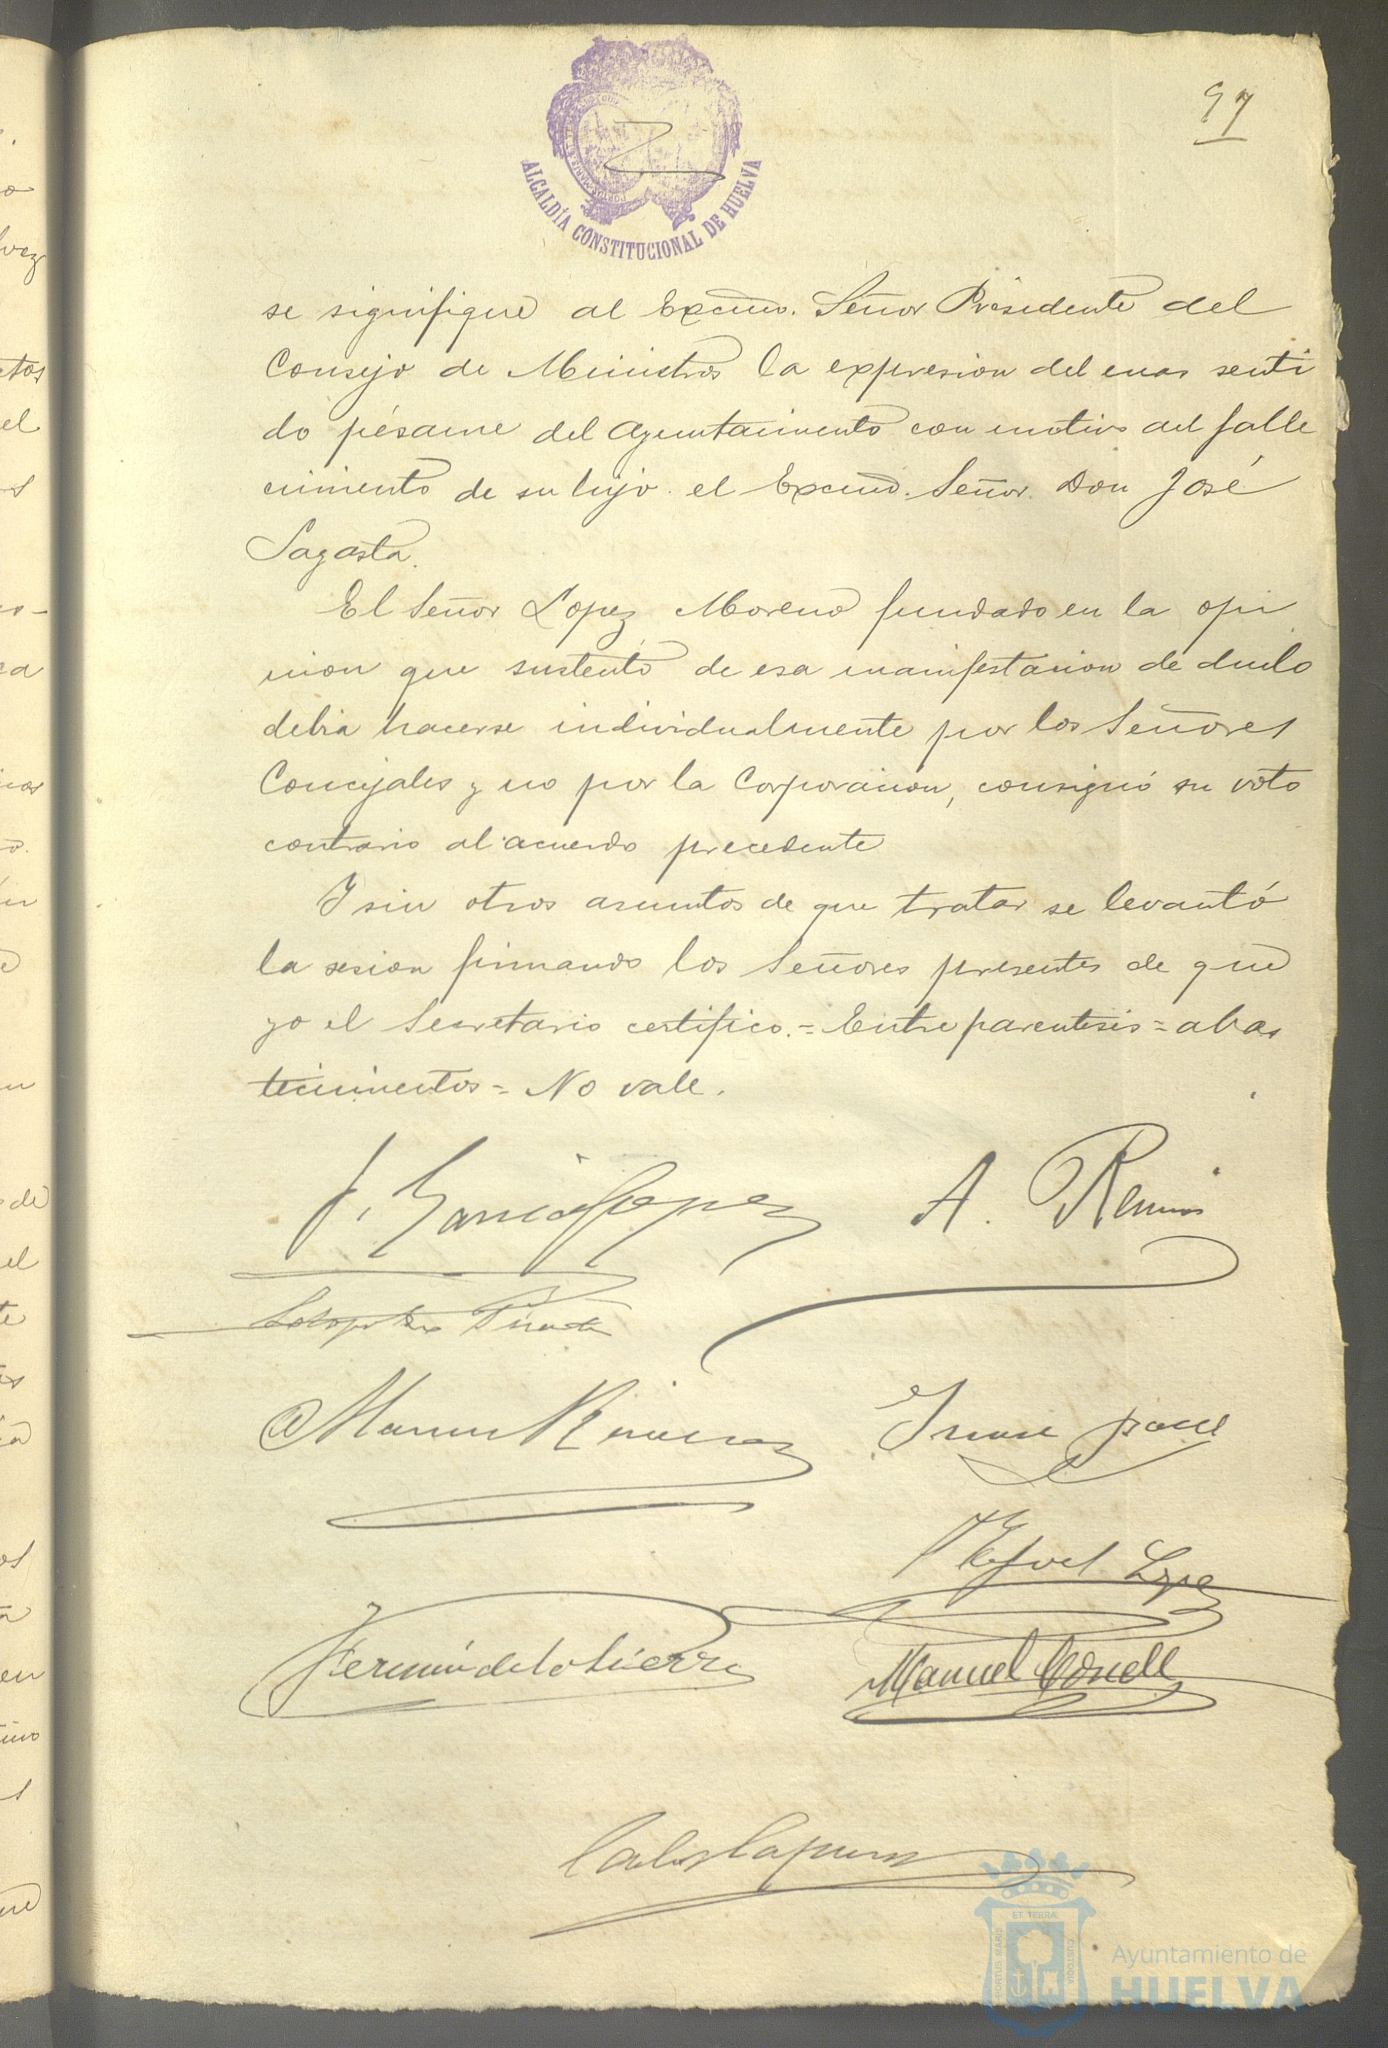 97
ALCALDÍA CONSTITUCIONAL DE HUELVA
se signifique al Excmo. Señor Presidente del
Consejo de Ministros la expresion del mas senti
do pésame del Ayuntamiento con motivo del falle
cimiento de su hijo el Excmo. Señor Don José
Sagasta.
El Señor López Moreno fundado en la opi
nion que sustentó de esa manifestacion de duelo
debia hacerse individualmente por los Señores
Concejales y no por la Corporacion, consignó su voto
contrario al acuerdo precedente
Y sin otros asuntos de que tratar se levantó
la sesion firmando los Señores presentes de que
yo el Secretario certifico.=Entre parentesis=abas
tecimientos=No vale.
J. García López
A.
Manuel
Miguel López
Fermín de la Sierra
Manuel
ET TERRA
PORTUS MARIS
CUSTODIA
Ayuntamiento de
HUELVA